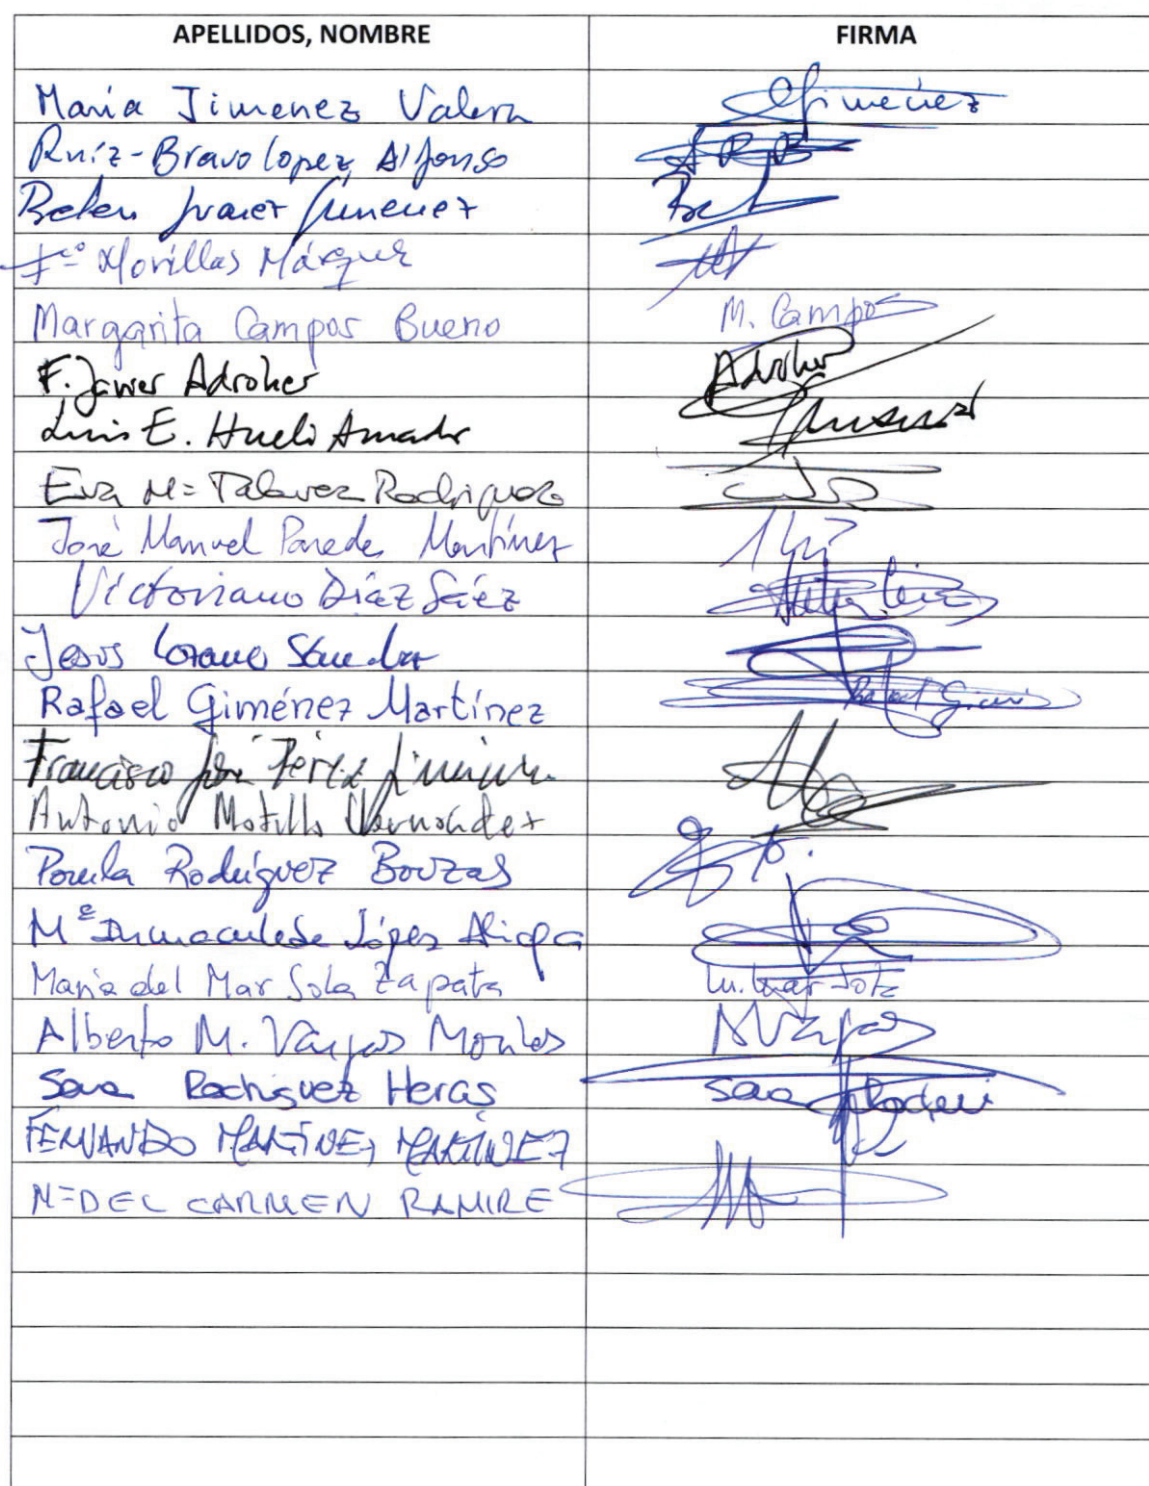 APELLIDOS, NOMBRE FIRMA
María Jimenez Valera Gimenez
Ruíz-Bravo Lopez, Alfonso ARB
Belen Juarez Jimenez Bel
Fco Morillas Márquez
Margarita Campos Bueno M. Campos
F. Javier Adroher Adroher
Luis E. Hueli Amador
Eva Mª Talavera Rodriguez
José Manuel Paredes Martínez
Victoriano Díaz Sáez
Jesus Lozano Sanchez
Rafael Giménez Martínez Rafael Gimé
Francisco José Pérez
Antonio Motilla Hernández
Paula Rodríguez Bouzas
Mª Inmaculada López Aliaga
María del Mar Sola Zapata M. Mar Sola
Alberto M. Vargas Morales AVargas
Sara Rodriguez Heras Sara Rodri
FERNANDO MARTÍNEZ MARTÍNEZ
Mª DEL CARMEN RAMIRE